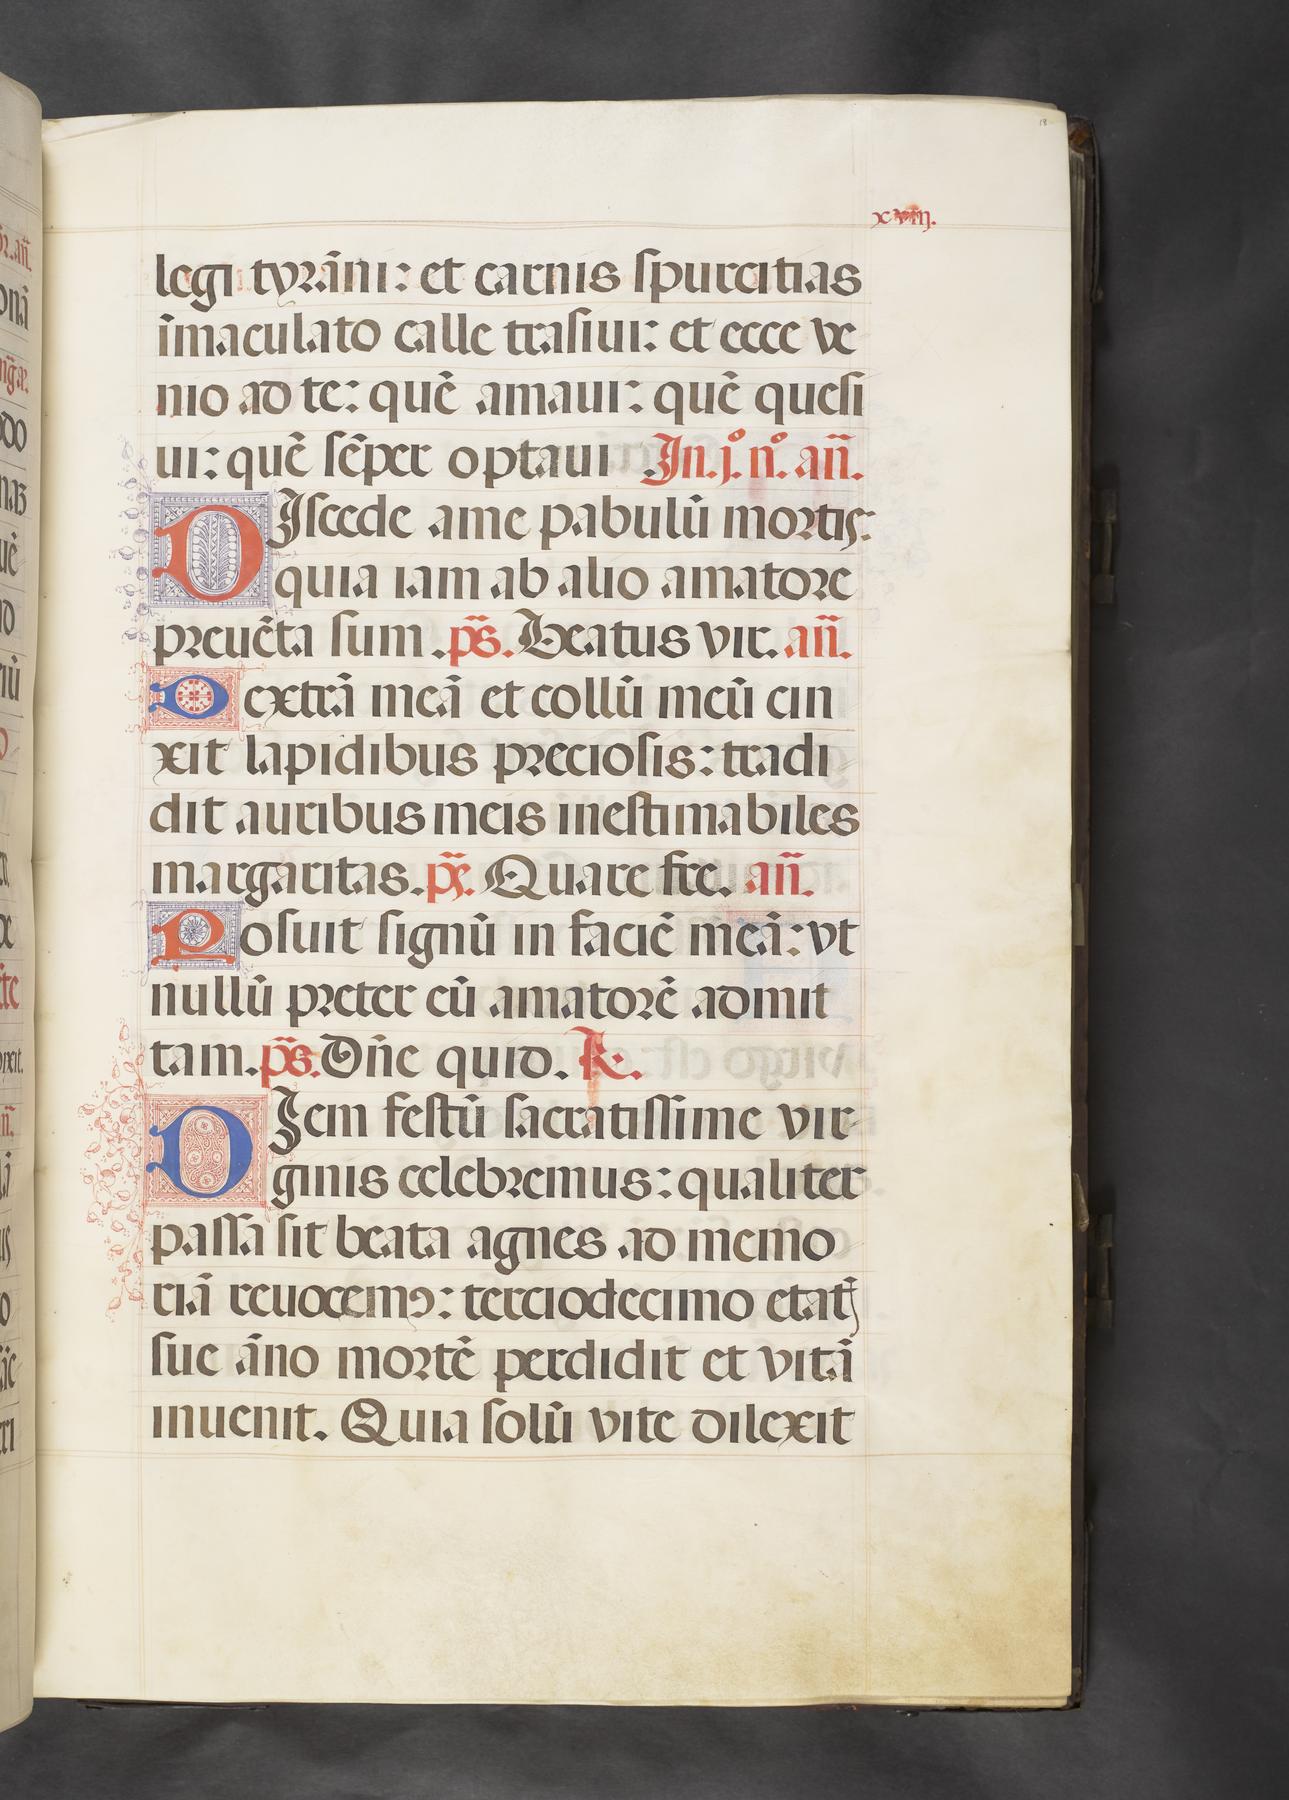 18
xviij.
legi tyrāni: et carnis spurcitias
īmaculato calle trāsiui: et ecce ve
nio ad te: quē amaui: quē quesi
ui: quē sēper optaui. In. j.º n.º añ.
DIscede ame pabulū mortis:
quia iam ab alio amatore
preuēta sum. p̄s. Beatus vir. añ.
Dextrā meā et collū meū cin
xit lapidibus preciosis: tradi
dit auribus meis inestimabiles
margaritas. p̄s. Quare fre. añ.
Posuit signū in faciē meā: vt
nullū preter eū amatorē admit
tam. p̄s. Dñe quid. R.
DIem festū sacratissime vir
ginis celebremus: qualiter
passa sit beata agnes ad memo
riā reuocemꝰ: terciodecimo etatꝭ
sue āno mortē perdidit et vitā
inuenit. Quia solū vite dilexit